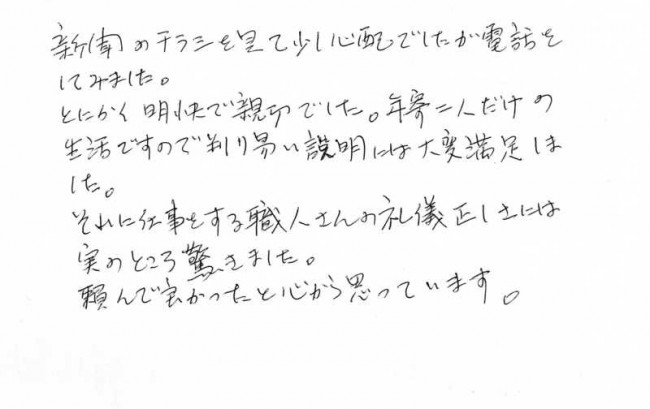 新聞のチラシを見て少し心配でしたが電話を
してみました。
とにかく明快で親切でした。年寄二人だけの
生活ですので判り易い説明には大変満足しま
した。
それに仕事をする職人さんの礼儀正しさには
実のところ驚きました。
頼んで良かったと心から思っています。